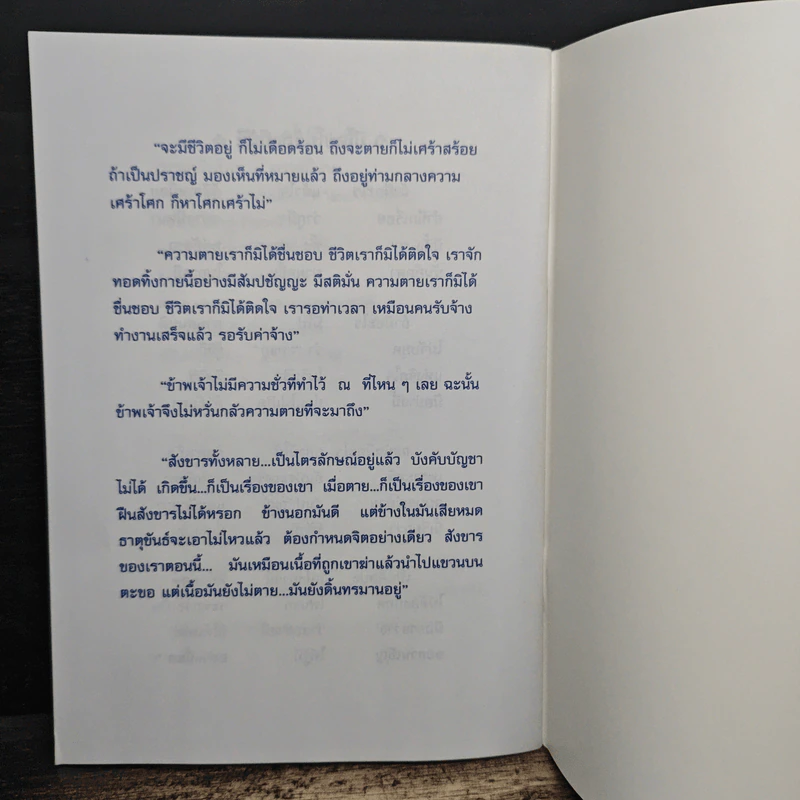 “จะมีชีวิตอยู่ ก็ไม่เดือดร้อน ถึงจะตายก็ไม่เศร้าสร้อย
ถ้าเป็นปราชญ์ มองเห็นที่หมายแล้ว ถึงอยู่ท่ามกลางความ
เศร้าโศก ก็หาโศกเศร้าไม่”
“ความตายเราก็มิได้ชื่นชอบ ชีวิตเราก็มิได้ติดใจ เราจัก
ทอดทิ้งกายนี้อย่างมีสัมปชัญญะ มีสติมั่น ความตายเราก็มิได้
ชื่นชอบ ชีวิตเราก็มิได้ติดใจ เรารอท่าเวลา เหมือนคนรับจ้าง
ทำงานเสร็จแล้ว รอรับค่าจ้าง”
“ข้าพเจ้าไม่มีความชั่วที่ทำไว้ ณ ที่ไหน ๆ เลย ฉะนั้น
ข้าพเจ้าจึงไม่หวั่นกลัวความตายที่จะมาถึง”
“สังขารทั้งหลาย...เป็นไตรลักษณ์อยู่แล้ว บังคับบัญชา
ไม่ได้ เกิดขึ้น...ก็เป็นเรื่องของเขา เมื่อตาย...ก็เป็นเรื่องของเขา
ฝืนสังขารไม่ได้หรอก ข้างนอกมันดี แต่ข้างในมันเสียหมด
ธาตุขันธ์จะเอาไม่ไหวแล้ว ต้องกำหนดจิตอย่างเดียว สังขาร
ของเราตอนนี้... มันเหมือนเนื้อที่ถูกเขาฆ่าแล้วนำไปแขวนบน
ตะขอ แต่เนื้อมันยังไม่ตาย...มันยังดิ้นทรมานอยู่”